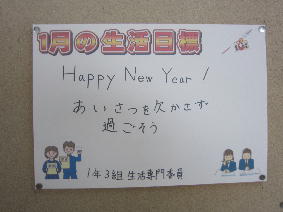 1月の生活目標
Happy New Year!
あいさつを欠かさず
過ごそう
1年3組 生活専門委員